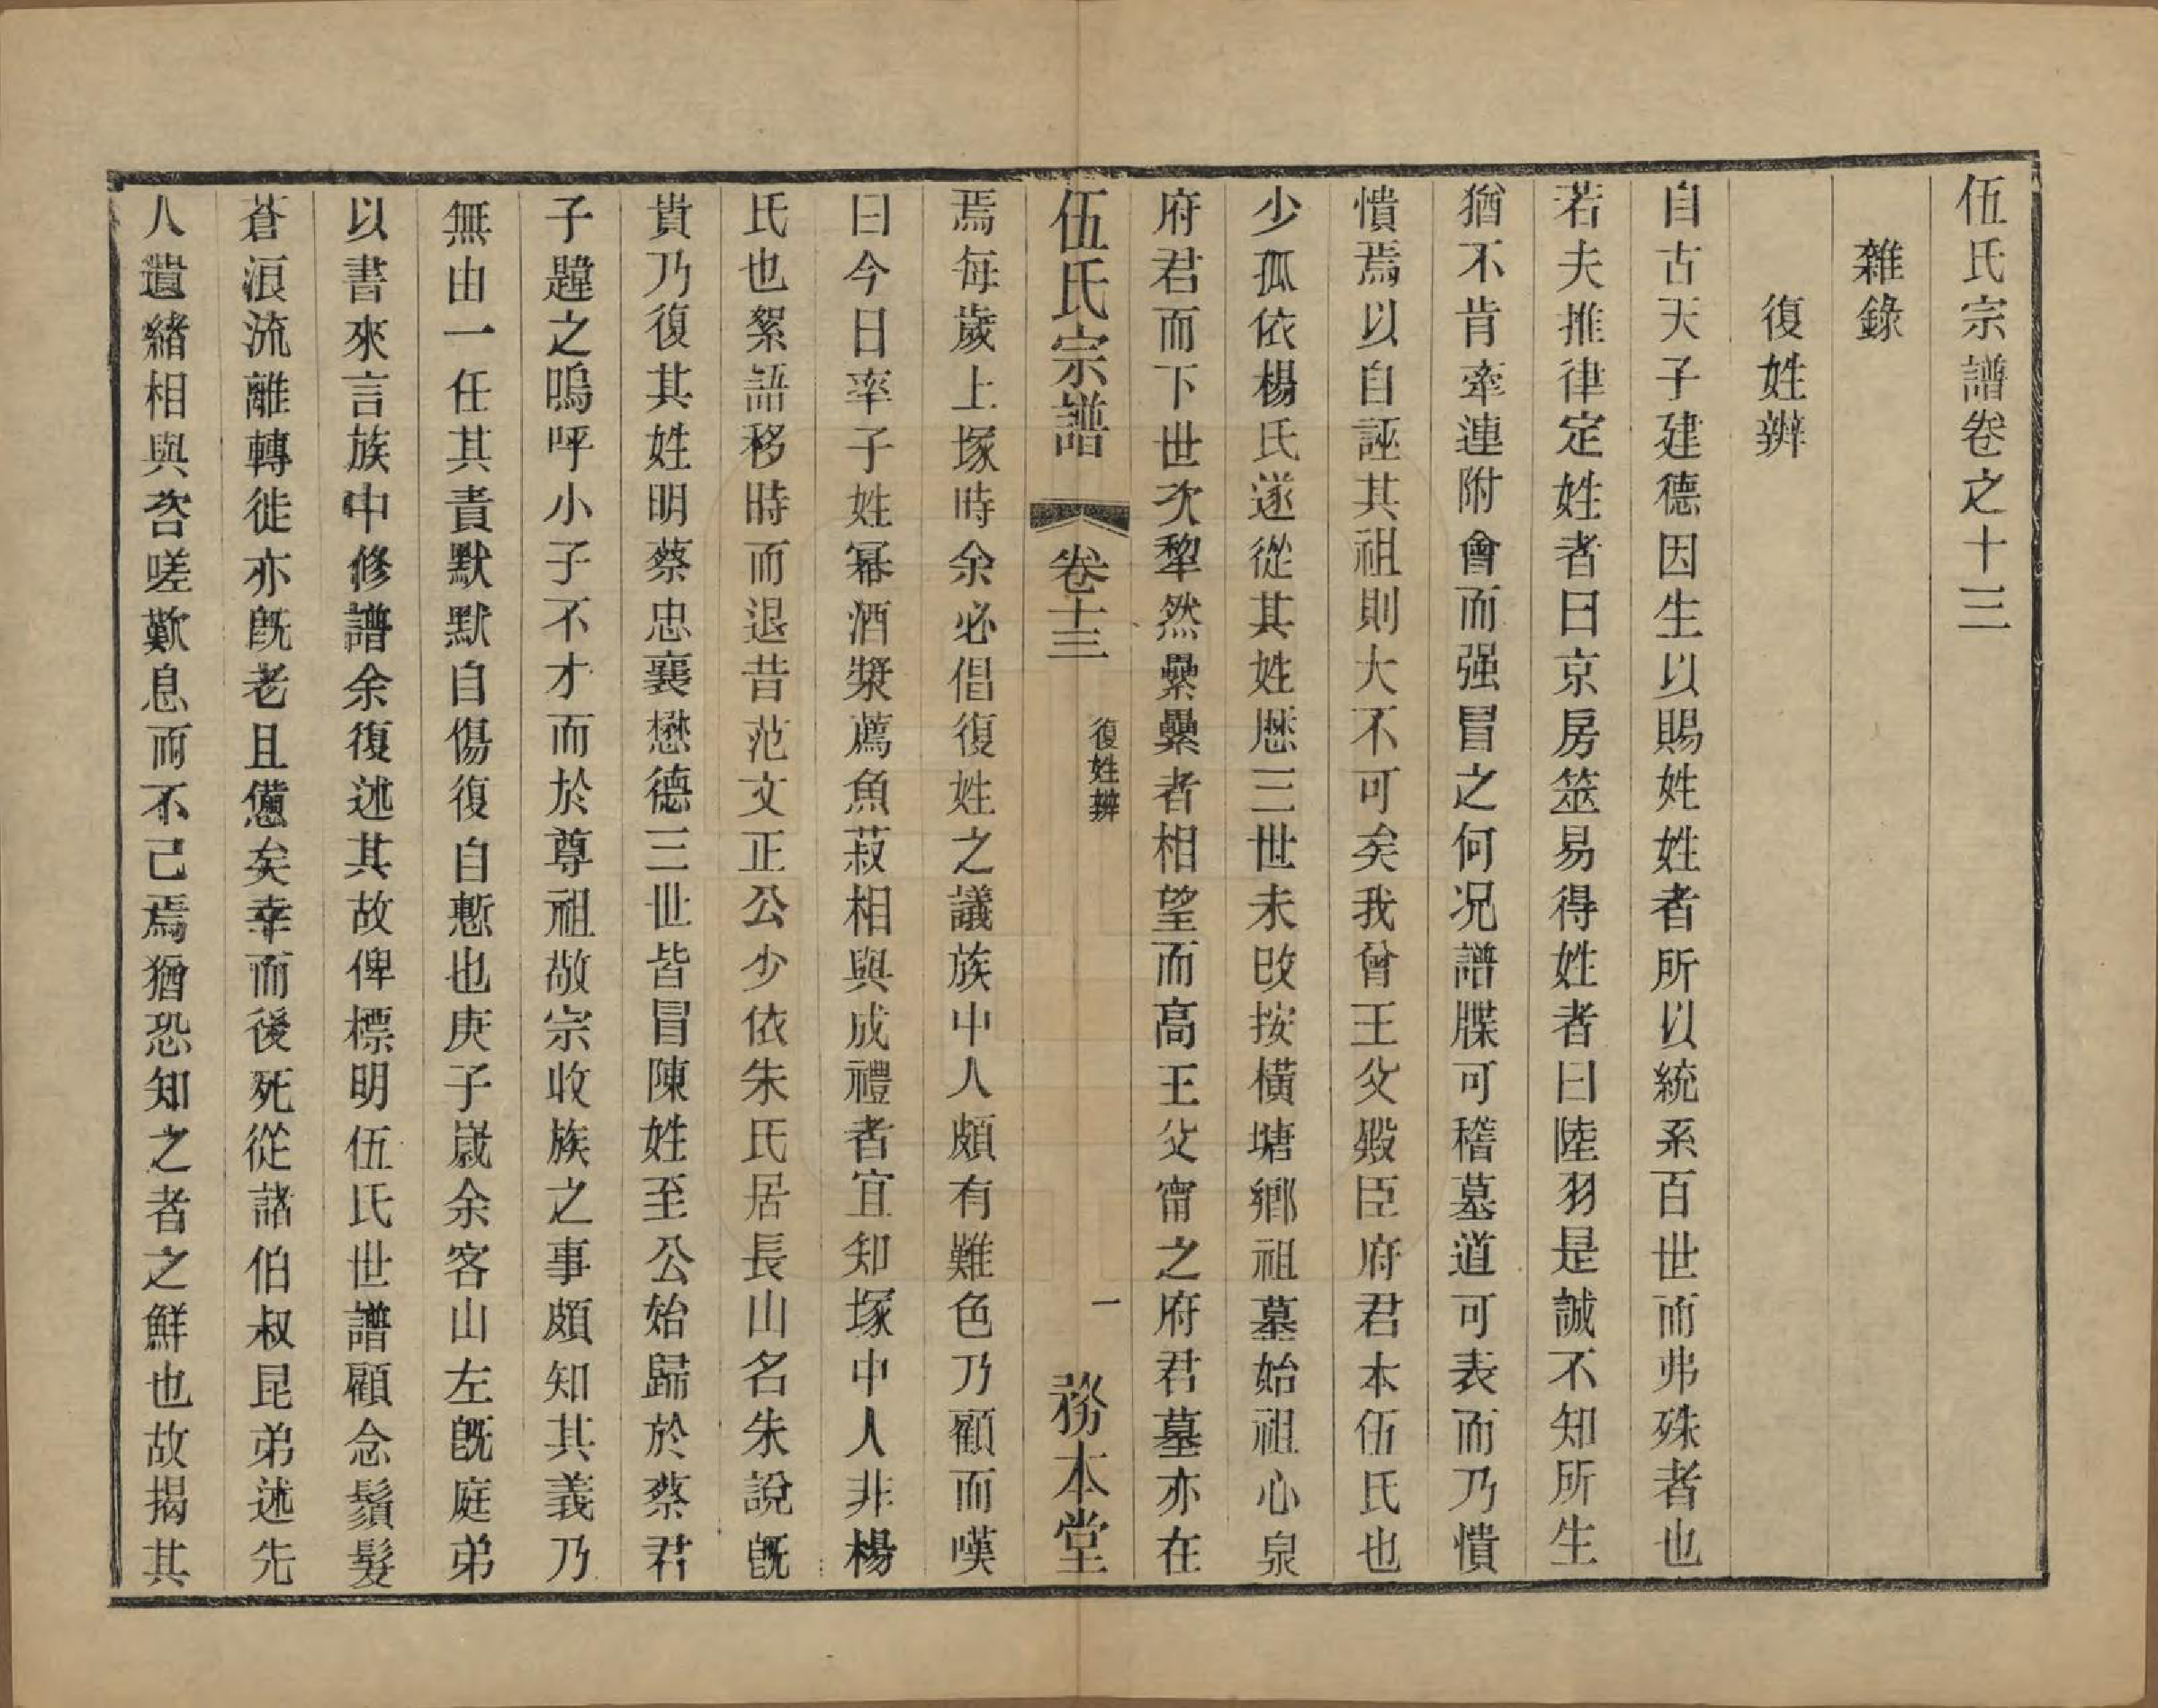 伍氏宗譜卷之十三
雜錄
復姓辨
自古天子建德因生以賜姓姓者所以統系百世而弗殊者也
若夫推律定姓者曰京房筮易得姓者曰陸羽是誠不知所生
猶不肯牽連附會而强冒之何况譜牒可稽墓道可表而乃憒
憒焉以自誣其祖則大不可矣我曾王父殿臣府君本伍氏也
少孤依楊氏遂從其姓歷三世未改按橫塘鄉祖墓始祖心泉
府君而下世次犂然纍纍者相望而高王父甯之府君墓亦在
伍氏宗譜
卷十三
復姓辨
一
務本堂
焉每歲上塚時余必倡復姓之議族中人頗有難色乃顧而嘆
曰今日率子姓冪酒漿薦魚菽相與成禮者宜知塚中人非楊
氏也絮語移時而退昔范文正公少依朱氏居長山名朱說既
貴乃復其姓明蔡忠襄懋德三世皆冒陳姓至公始歸於蔡君
子韙之嗚呼小子不才而於尊祖敬宗收族之事頗知其義乃
無由一任其責默默自傷復自慙也庚子歲余客山左既庭弟
以書來言族中修譜余復述其故俾標明伍氏世譜顧念鬚髮
蒼浪流離轉徙亦既老且憊矣幸而後死從諸伯叔昆弟述先
人遺緒相與咨嗟歎息而不已焉猶恐知之者之鮮也故揭其